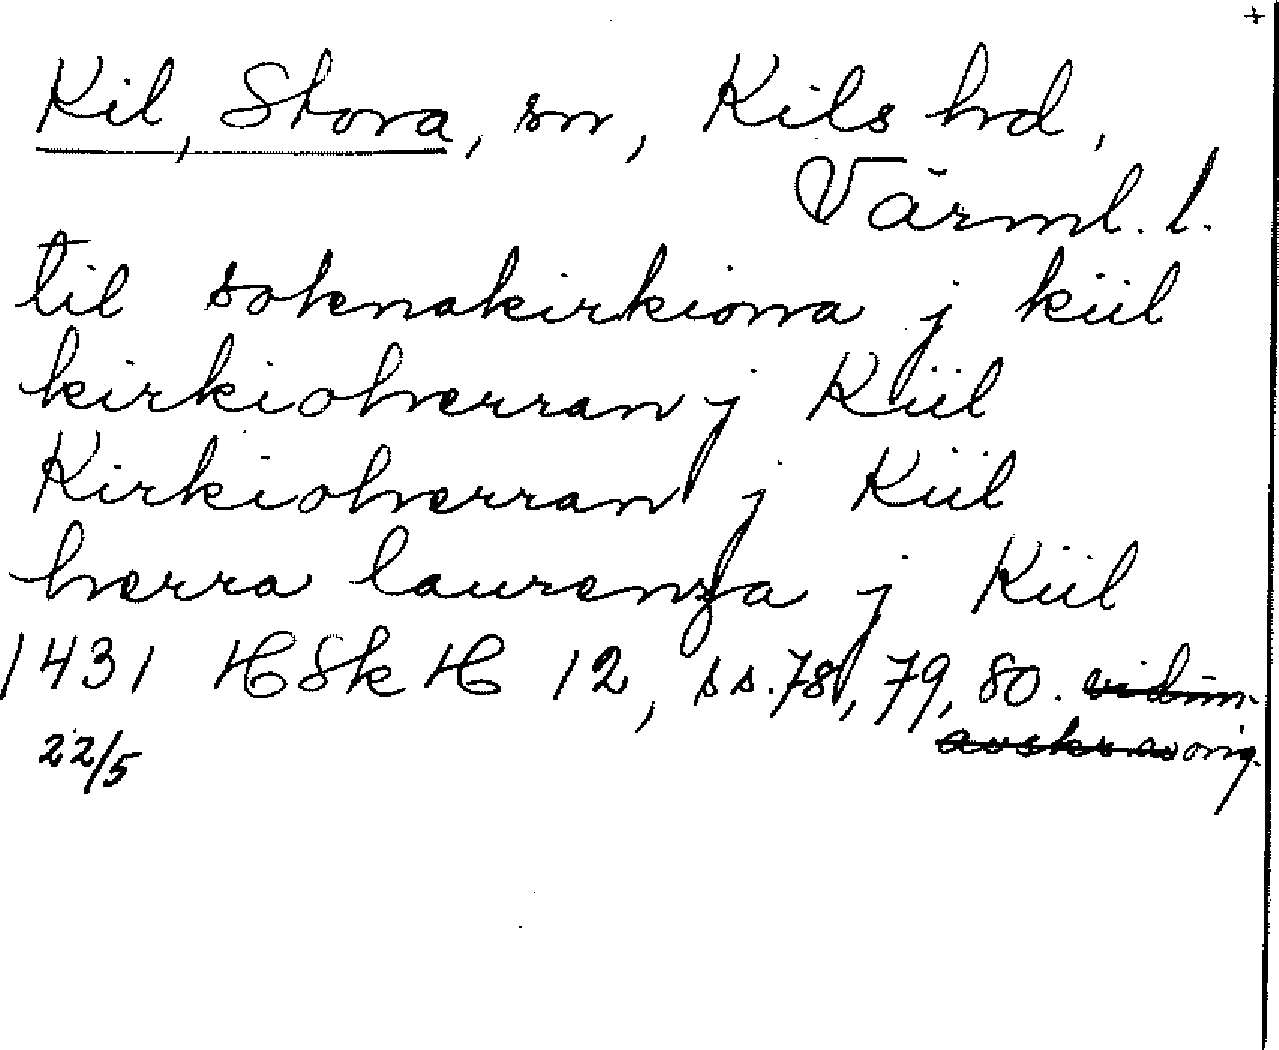 +
Kil, Stora, sn, Kils hd,
Värml. l.
til soknakirkiona j kiil
kirkioherran j Kiil
Kirkioherran j Kiil
herra laurenza j Kiil
1431 HSkH 12, ss. 78, 79, 80. vidim.
avskr av orig.
22/5